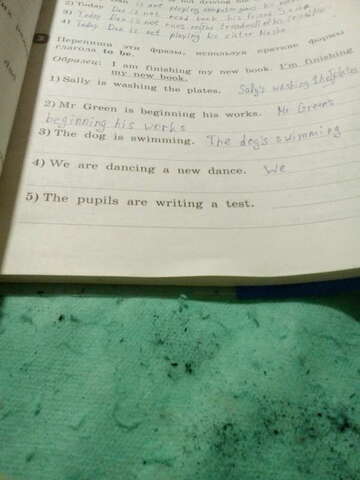 2) Today Dan is not playing computer games his
3) Today Dan is not read book his friend
4) Today Dan is not playing his sister Masha
Перепиши эти фразы, используя краткие формы
глагола to be.
Образец: I am finishing my new book. I'm finishing
my new book.
1) Sally is washing the plates. Sally's washing the plates
2) Mr Green is beginning his works. Mr Green's
beginning his works
3) The dog is swimming. The dog's swimming
4) We are dancing a new dance. We
5) The pupils are writing a test.